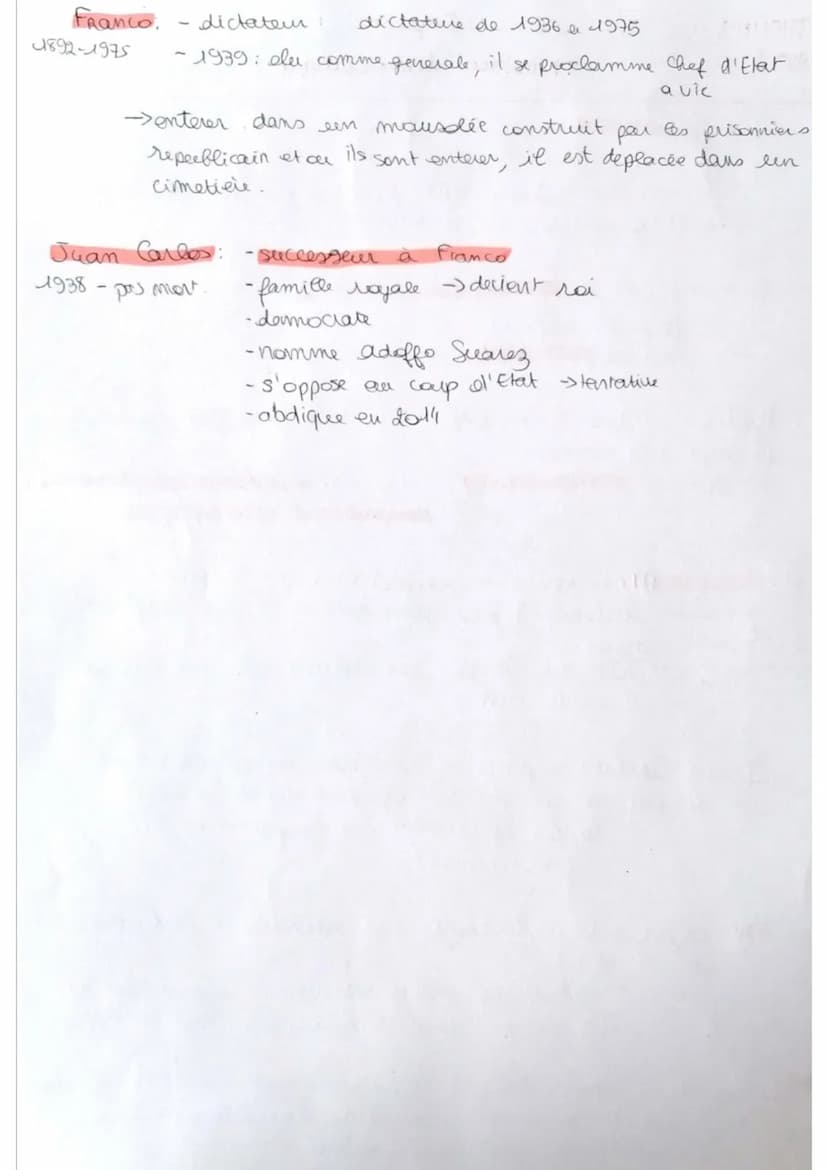 Franco. - dictateur : dictature de 1936 a 1975
1892-1975 - 1939 : elu comme generale, il se proclamme Chef d'Etat
a vie
→ enterer dans un mausolée construit par les prisonniers
republicain et ou ils sont enterer, il est deplacée dans un
cimetière.
Juan Carlos : - successeur à Franco
1938 - pas mort. - famille royale → devient roi
- democrate
- nomme adolfo Suarez
- s'oppose au coup d'Etat → tentative
- abdique en 2014